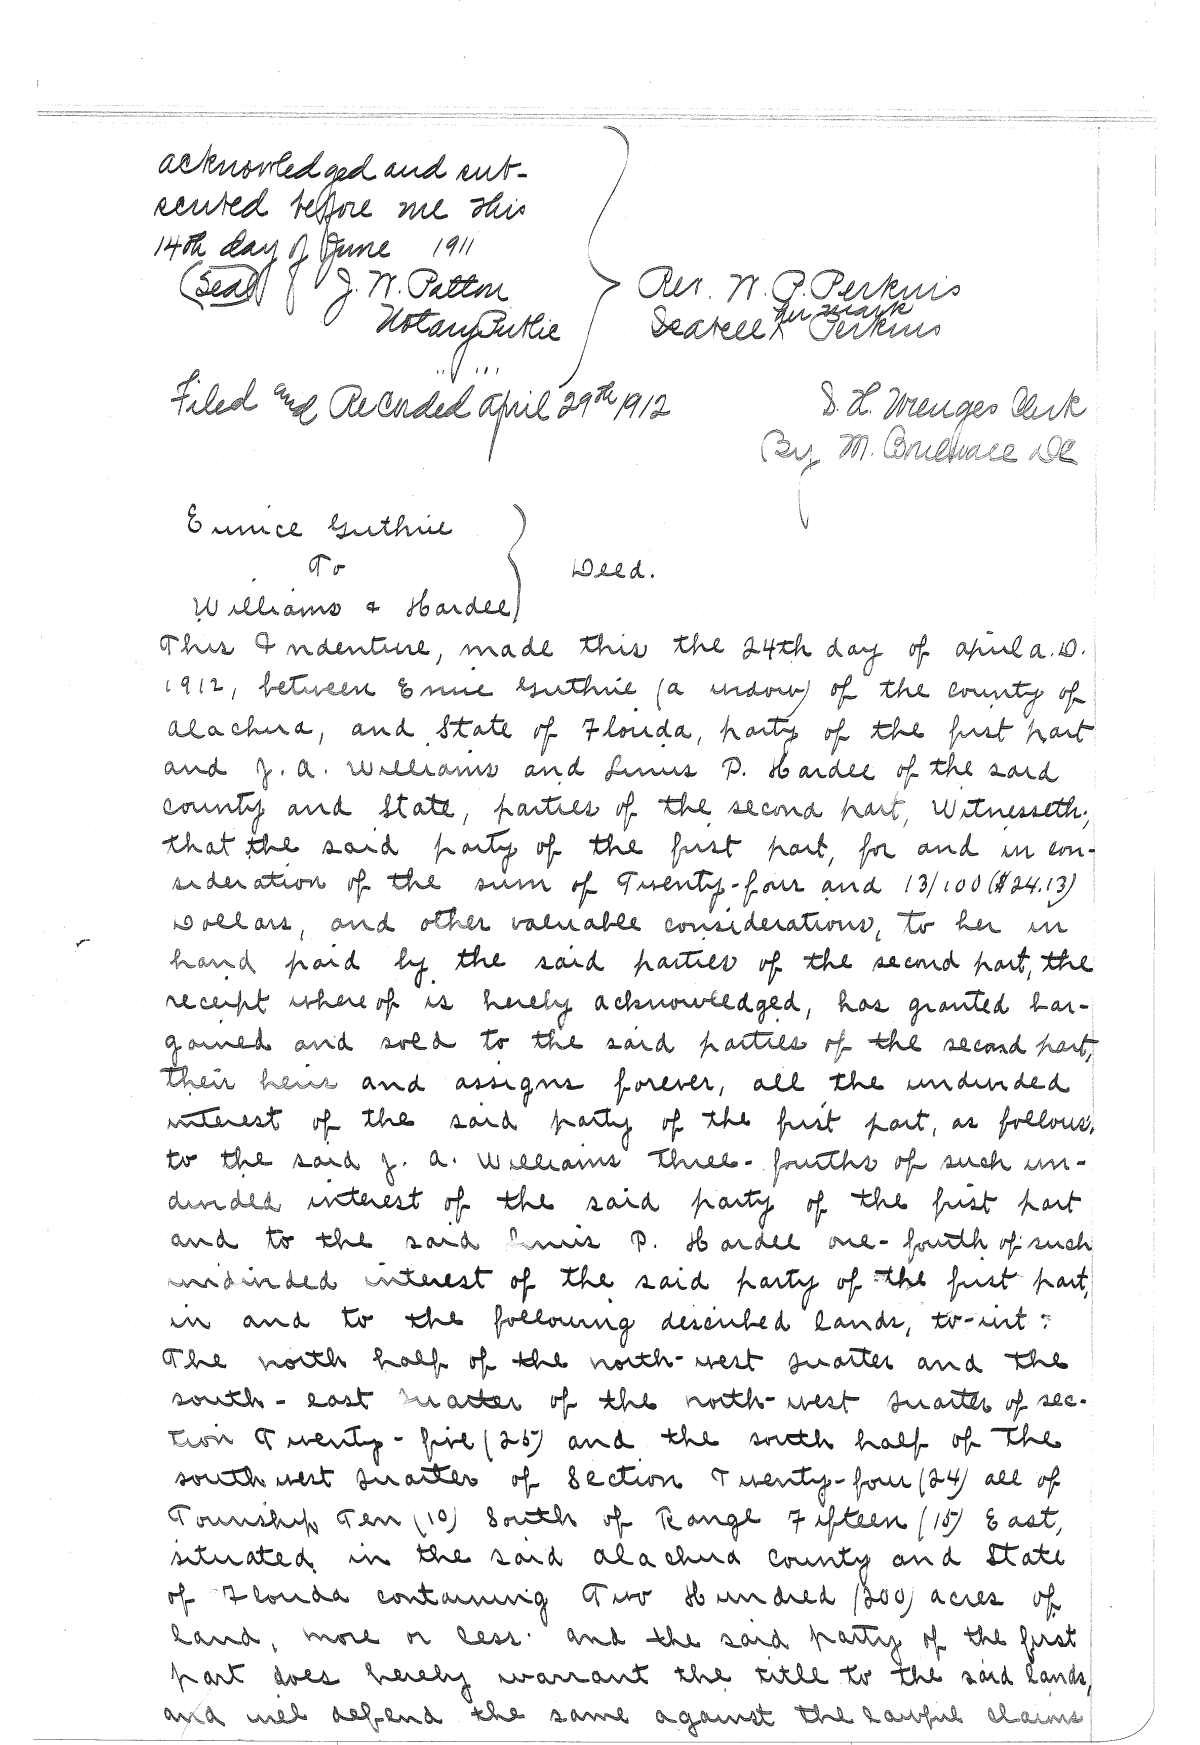 acknowledged and sub-
scribed before me this
14th day of June 1911
(Seal) J. W. Patton
Notary Public
Rev. W. P. Perkins
her mark
X Perkins
Filed and Recorded April 29th 1912
S. H. Wienges Clerk
By M. DC
Eunice Guthrie
To
Williams & Hardee
Deed.
This Indenture, made this the 24th day of April A.D.
1912, between Guthrie (a widow) of the county of
Alachua, and State of Florida, party of the first part
and J. A. Williams and P. Hardee of the said
county and State, parties of the second part, Witnesseth;
that the said party of the first part, for and in con-
sideration of the sum of Twenty-four and 13/100 ($24.13)
Dollars, and other valuable considerations, to her in
hand paid by the said parties of the second part, the
receipt whereof is hereby acknowledged, has granted bar-
gained and sold to the said parties of the second part,
their heirs and assigns forever, all the undivided
interest of the said party of the first part, as follows,
to the said J. A. Williams three-fourths of such un-
divided interest of the said party of the first part
and to the said P. Hardee one-fourth of such
undivided interest of the said party of the first part,
in and to the following described lands, to-wit:
The north half of the north-west quarter and the
south-east quarter of the north-west quarter of sec-
tion Twenty-five (25) and the south half of the
southwest quarter of Section Twenty-four (24) all of
Township Ten (10) South of Range Fifteen (15) East,
situated in the said Alachua county and State
of Florida containing Two Hundred (200) acres of
land, more or less. And the said party of the first
part does hereby warrant the title to the said lands,
and will defend the same against the lawful claims